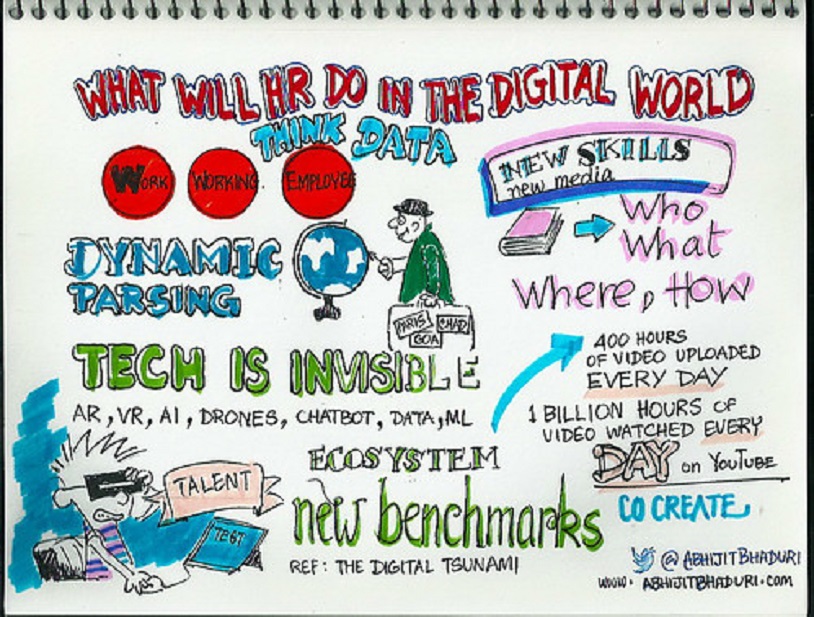 WHAT WILL HR DO IN THE DIGITAL WORLD
THINK DATA
WORK
WORKING
EMPLOYEE
NEW SKILLS
new media
Who
What
Where, HOW
DYNAMIC
PARSING
PARIS
CHAD
GOA
TECH IS INVISIBLE
AR, VR, AI, DRONES, CHATBOT, DATA, ML
400 HOURS
OF VIDEO UPLOADED
EVERY DAY
1 BILLION HOURS OF
VIDEO WATCHED EVERY
DAY on YOUTUBE
CO CREATE
TALENT
TEST
ECOSYSTEM
new benchmarks
REF: THE DIGITAL TSUNAMI
@ABHIJITBHADURI
www. ABHIJITBHADURI.COM